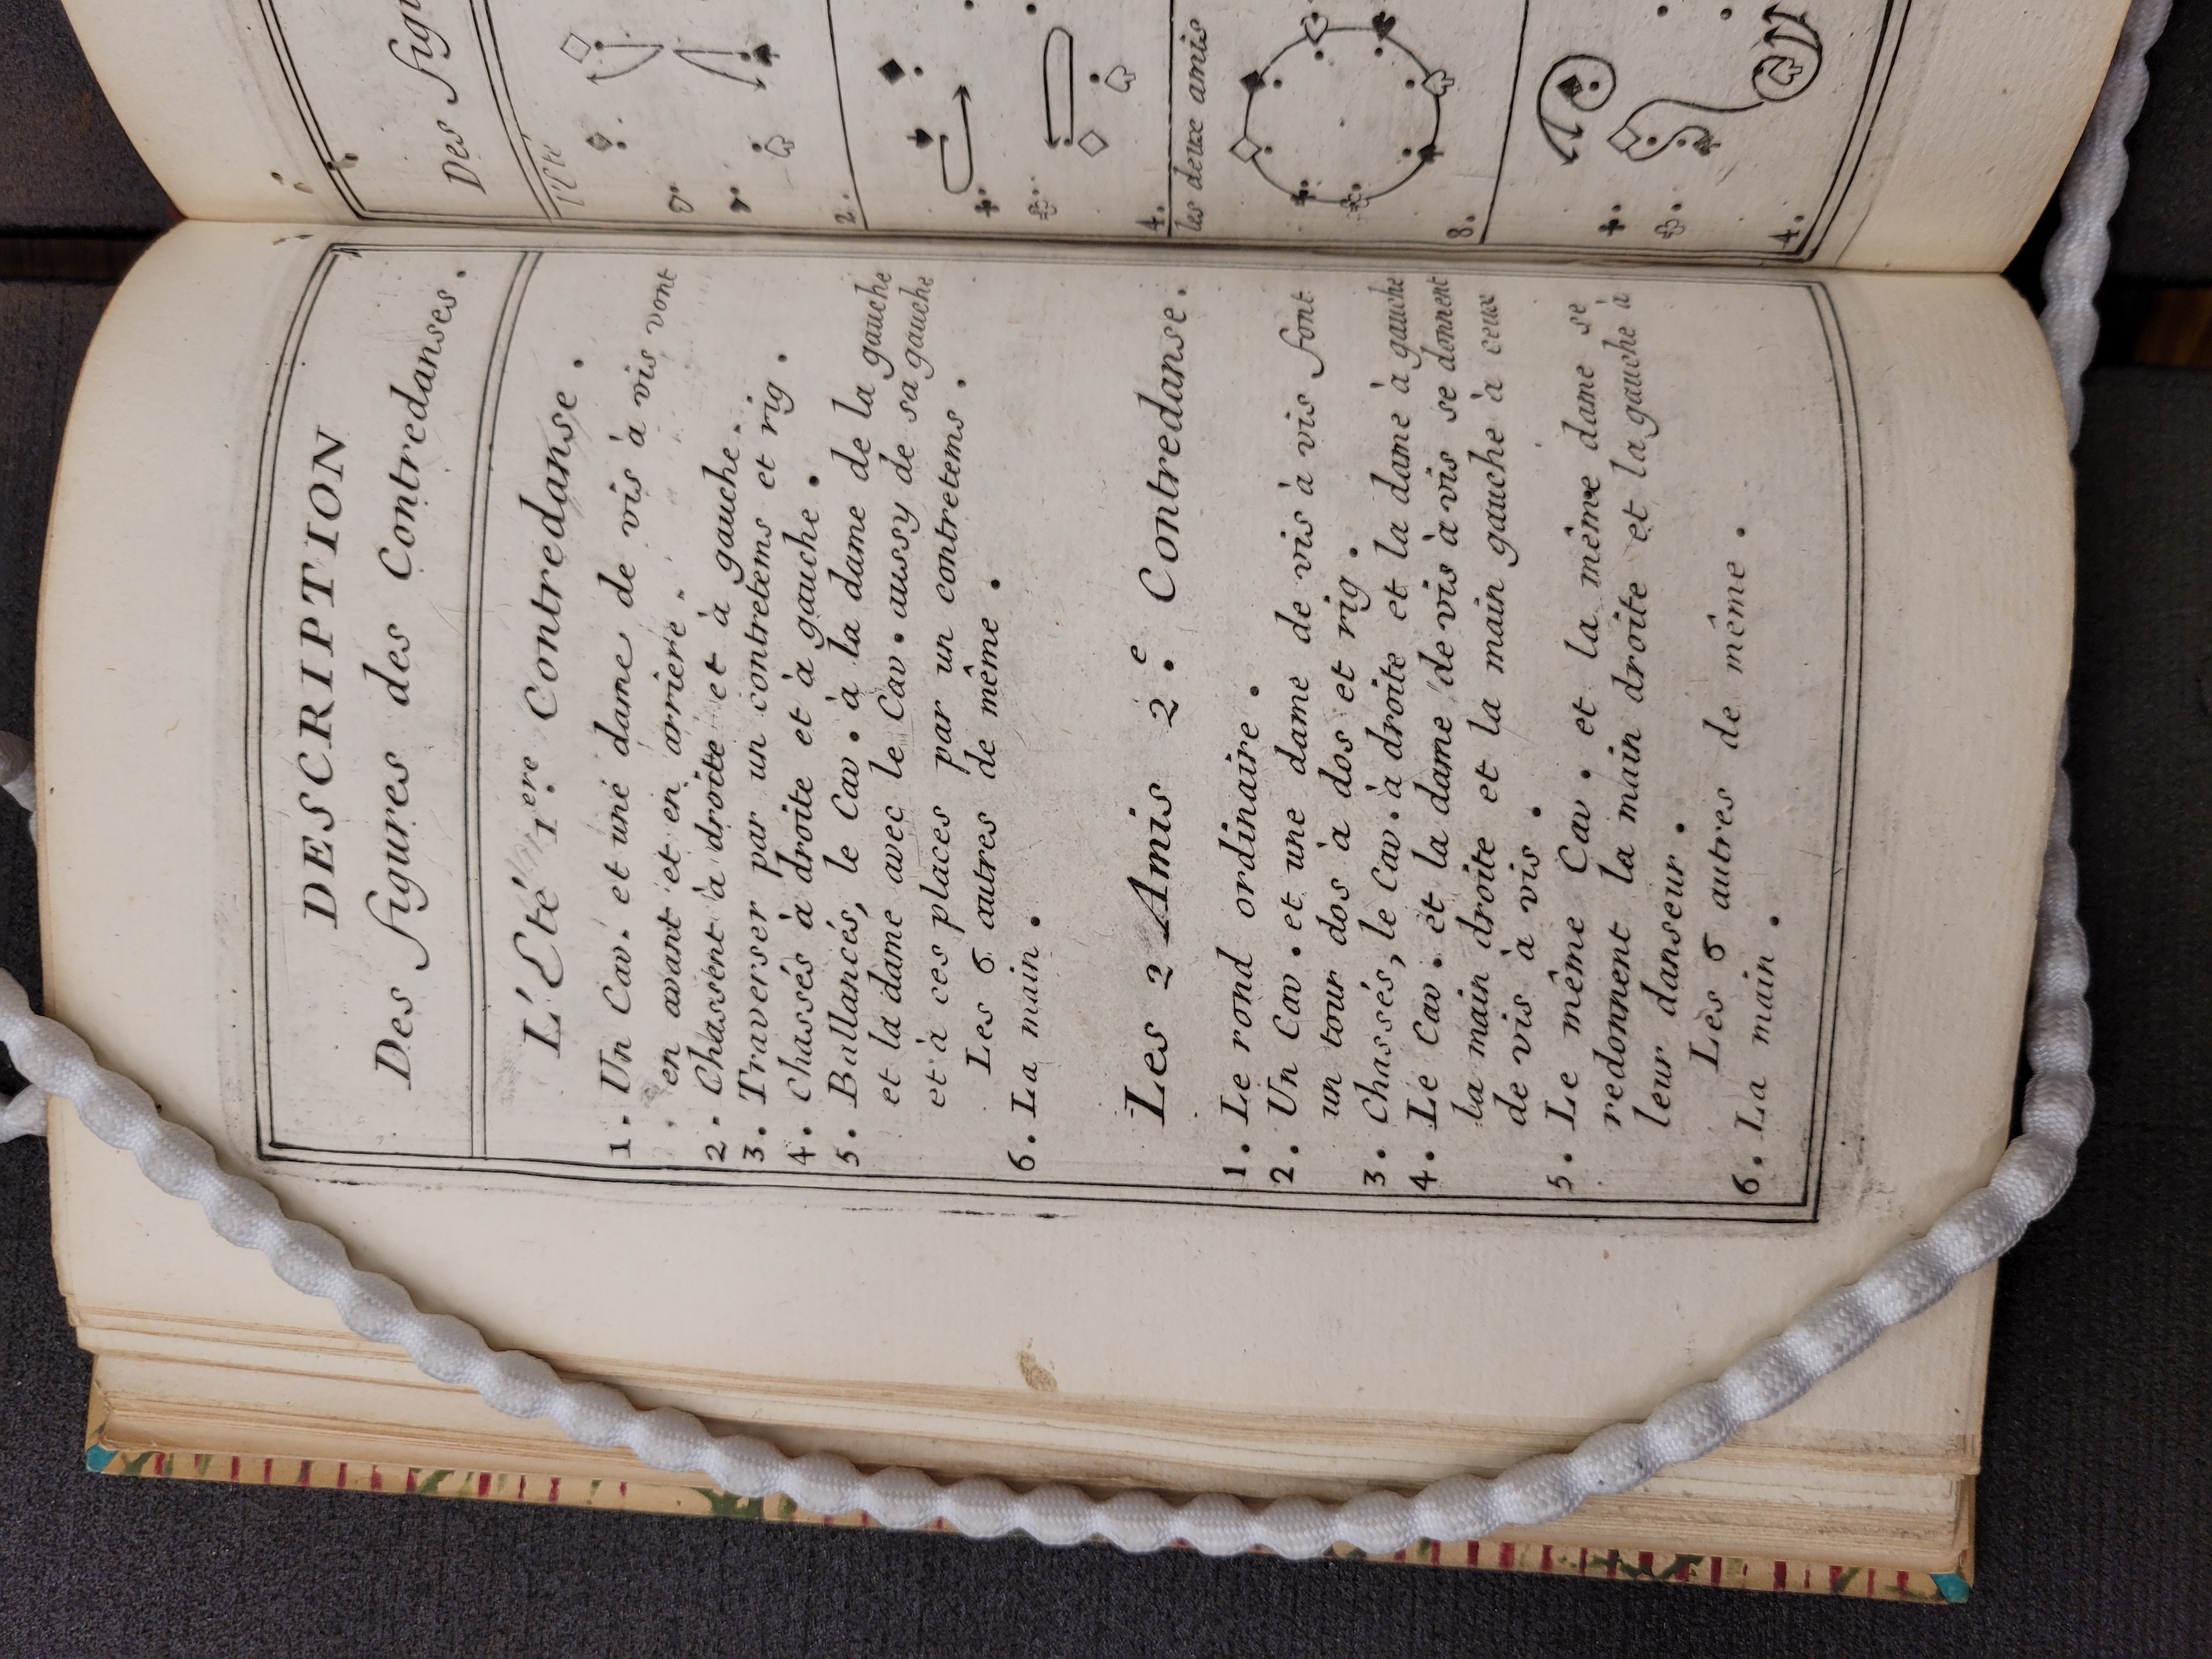 DESCRIPTION
Des figures des Contredanses.
L'Eté 1.ere Contredanse.
1. Un Cav. et une dame de vis à vis vont
en avant et en arriere.
2. Chassent à droite et à gauche.
3. Traverser par un contretems et rig.
4. Chassés à droite et à gauche.
5. Ballancés, le Cav. à la dame de la gauche
et la dame avec le Cav. aussy de sa gauche
et à ces places par un contretems.
Les 6 autres de même.
6. La main.
Les 2 Amis 2.e Contredanse.
1. Le rond ordinaire.
2. Un Cav. et une dame de vis à vis font
un tour dos à dos et rig.
3. Chassés, le Cav. à droite et la dame à gauche
4. Le Cav. et la dame de vis à vis se donnent
la main droite et la main gauche à ceux
de vis à vis.
5. Le même Cav. et la même dame se
redonnent la main droite et la gauche à
leur danseur.
Les 6 autres de même.
6. La main.
Des figu
l'Eté
2.
4.
les deux amis
8.
4.